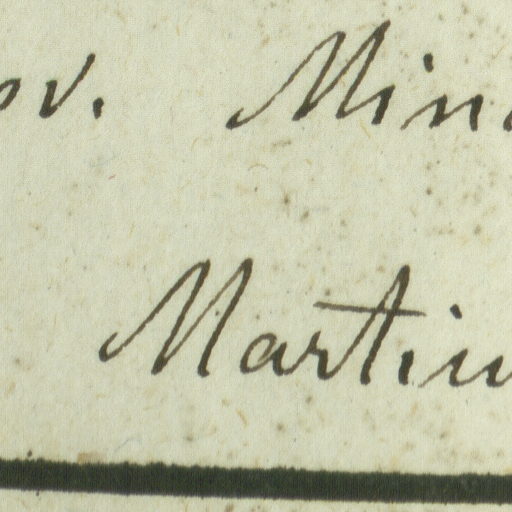 ov. Min
Martiu